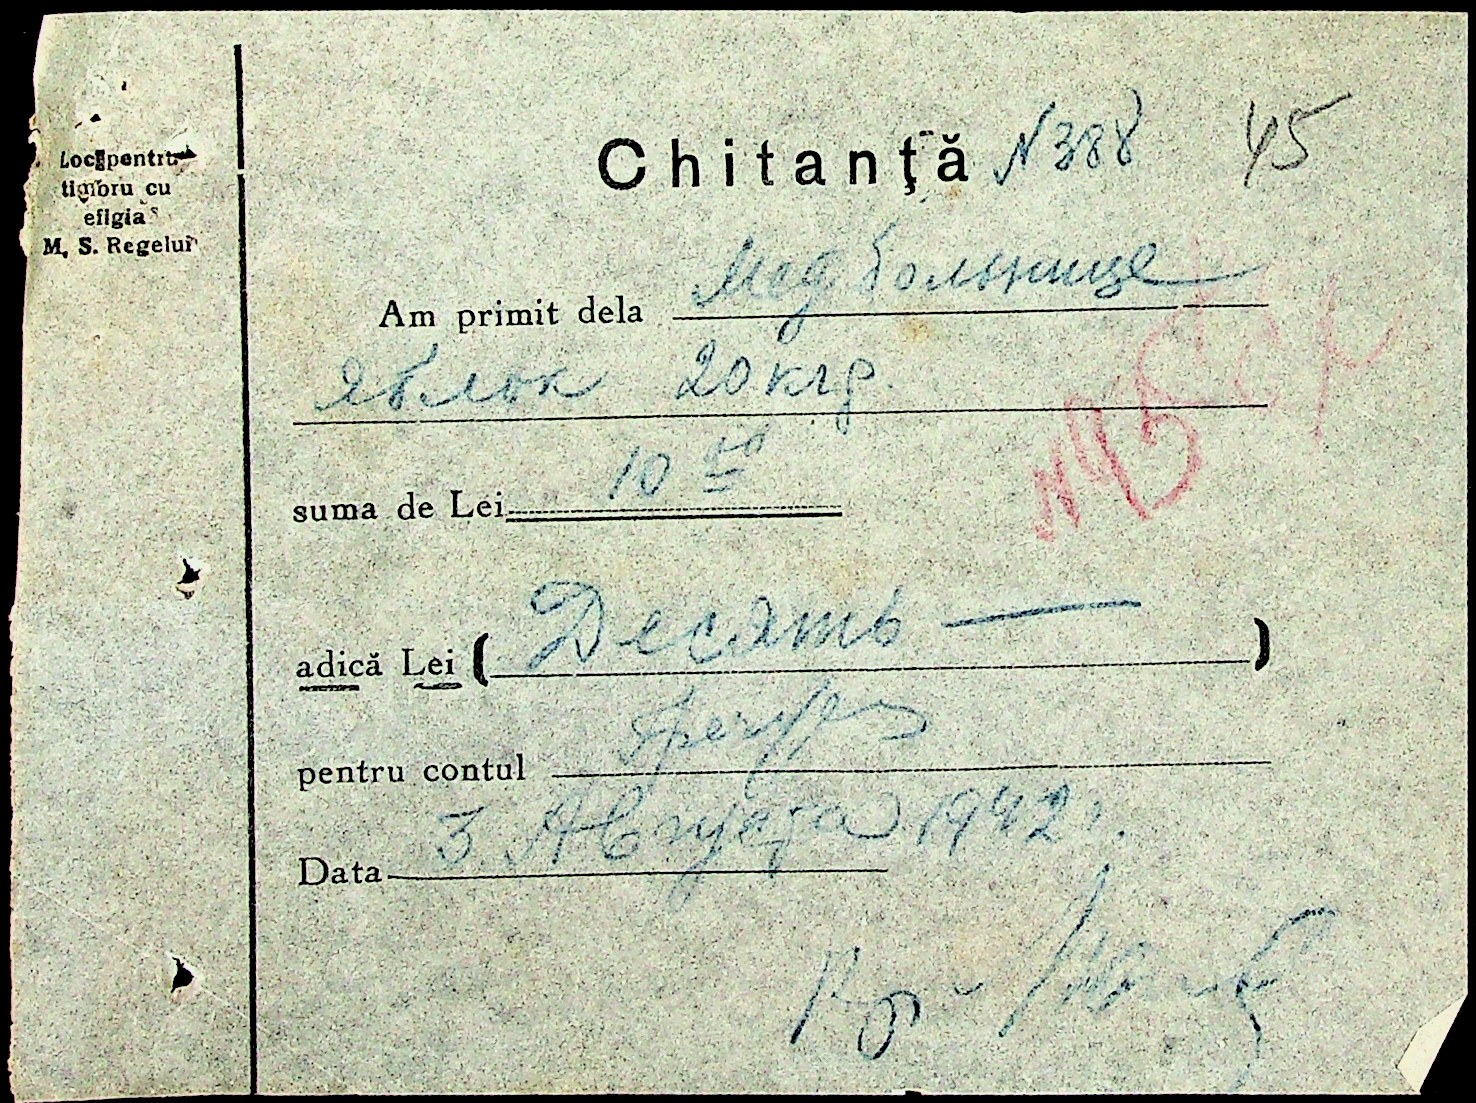 Loc pentru
timbru cu
efigia
M. S. Regelui
Chitanță N 388 45
Am primit dela Мед больнице
яблок 20 кгр.
suma de Lei 10
adică Lei (Десять —)
pentru contul
Data 3 Августа 1942 г.